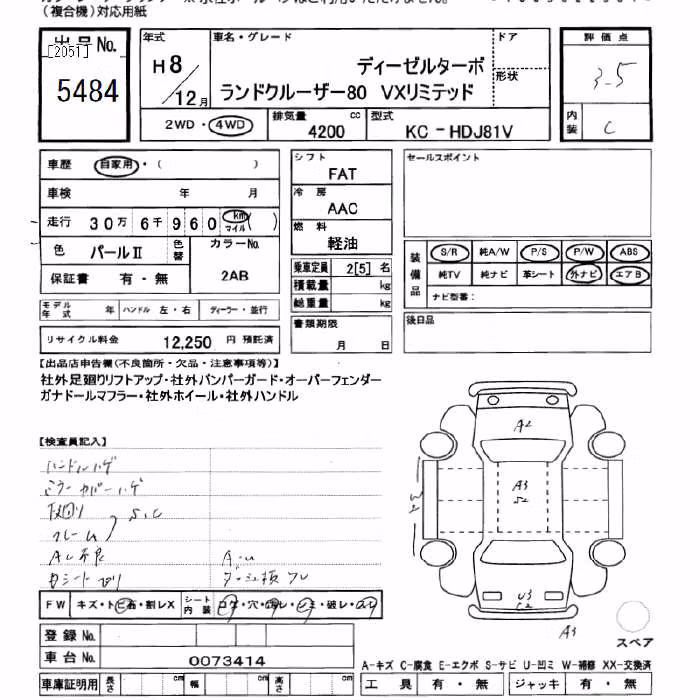 (複合機)対応用紙
出品No.
[2051]
5484
年式
H8/12月
車名・グレード
ディーゼルターボ
ランドクルーザー80 VXリミテッド
ドア
形状
2WD・4WD
排気量
4200
cc
型式
KC-HDJ81V
評価点
3.5
内装
C
車歴
自家用・( )
車検 年 月
走行 30万6千960 km マイル ( )
色 パールⅡ
色替
カラーNo.
2AB
保証書 有・無
シフト
FAT
冷房
AAC
燃料
軽油
乗車定員 2[5] 名
積載量 kg
総重量 kg
セールスポイント
装備品
S/R 純A/W P/S P/W ABS
純TV 純ナビ 革シート 外ナビ エアB
ナビ型番:
モデル年式 年 ハンドル 左・右 ディーラー・並行
リサイクル料金 12,250 円 預託済
書類期限
月 日
後日品
【出品店申告欄(不良箇所・欠品・注意事項等)】
社外足廻りリフトアップ・社外バンパーガード・オーバーフェンダー
ガナドールマフラー・社外ホイール・社外ハンドル
【検査員記入】
ハンドルハゲ
ミラーカバーハゲ
下廻り
フレーム
S,C
AC不良
A2
A3
S2
U3
C2
A3
FW キズ・トビ石・割レX
シート内装 コゲ・穴・切レ・シミ・破レ・スレ
登録No.
車台No.
0073414
スペア
A-キズ C-腐食 E-エクボ S-サビ U-凹ミ W-補修 XX-交換済
車庫証明用 長さ cm 幅 cm 高さ cm
工具 有・無 ジャッキ 有・無